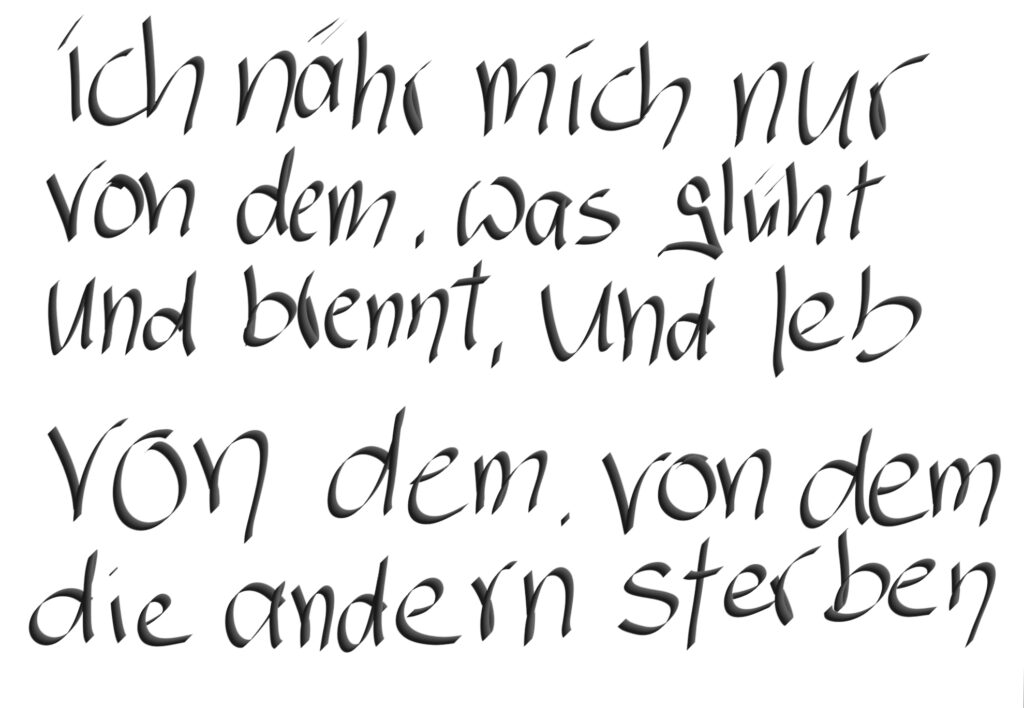 ich nähr mich nur
von dem, was glüht
und brennt, und leb
von dem, von dem
die andern sterben